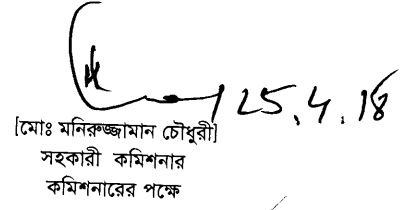 25.4.18
[মোঃ মনিরুজ্জামান চৌধুরী]
সহকারী কমিশনার
কমিশনারের পক্ষে